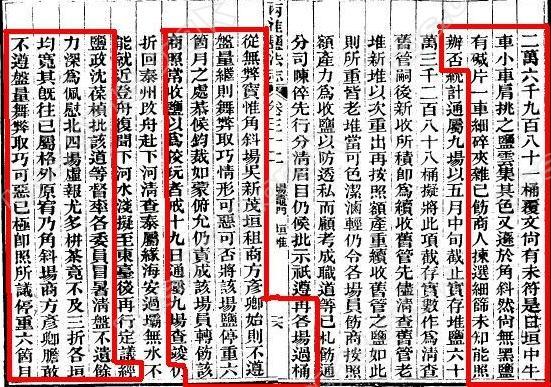 二萬六千九百八十一桶覆文尚有未符是日垣中牛
車小車肩挑之鹽雲集其色又遜於角斜然何無黑鹽
有碱片一車細碎夾雜已飭商人揀選細篩未知能照
辦否統計通屬九場以五月中旬截止實存堆鹽六十
萬三千二百八十八桶擬將此項截存實數作為清查
舊管嗣後新收所積即為續收舊管先儘清查舊管老
堆新堆以次重出再按照額產重續收舊管之鹽如此
則所重皆老堆當可色潔滷輕仍令各場員飭商按照
額產力為收鹽以防透私而顧考成職道等已札飭通
分司陳倅先行分清眉目仍候批示祗遵再各場過桶
兩淮鹽法志 卷三十二 場竈門 垣堆 六
從無弊竇惟角斜場吳新茂垣租商方彥卿始則不遵
盤量繼則舞弊取巧情形可惡可否將該場鹽停重六
箇月之處恭候鈞裁如蒙俯允仍責成該場員轉飭該
商照常收鹽以為狡玩者戒十九日通屬九場查竣仍
折回泰州改舟赴下河清查泰屬緣海安過壩無水不
能就近登舟復聞下河水淺擬至東臺後再行定議經
鹽政沈葆楨批該道等督率各委員冒暑清盤不遺餘
力深為佩慰北四場虛報尤多栟茶竟不及三折各垣
均寬其既往已屬格外原宥乃角斜場商方彥卿膽敢
不遵盤量舞弊取巧可惡已極即照所議停重六箇月